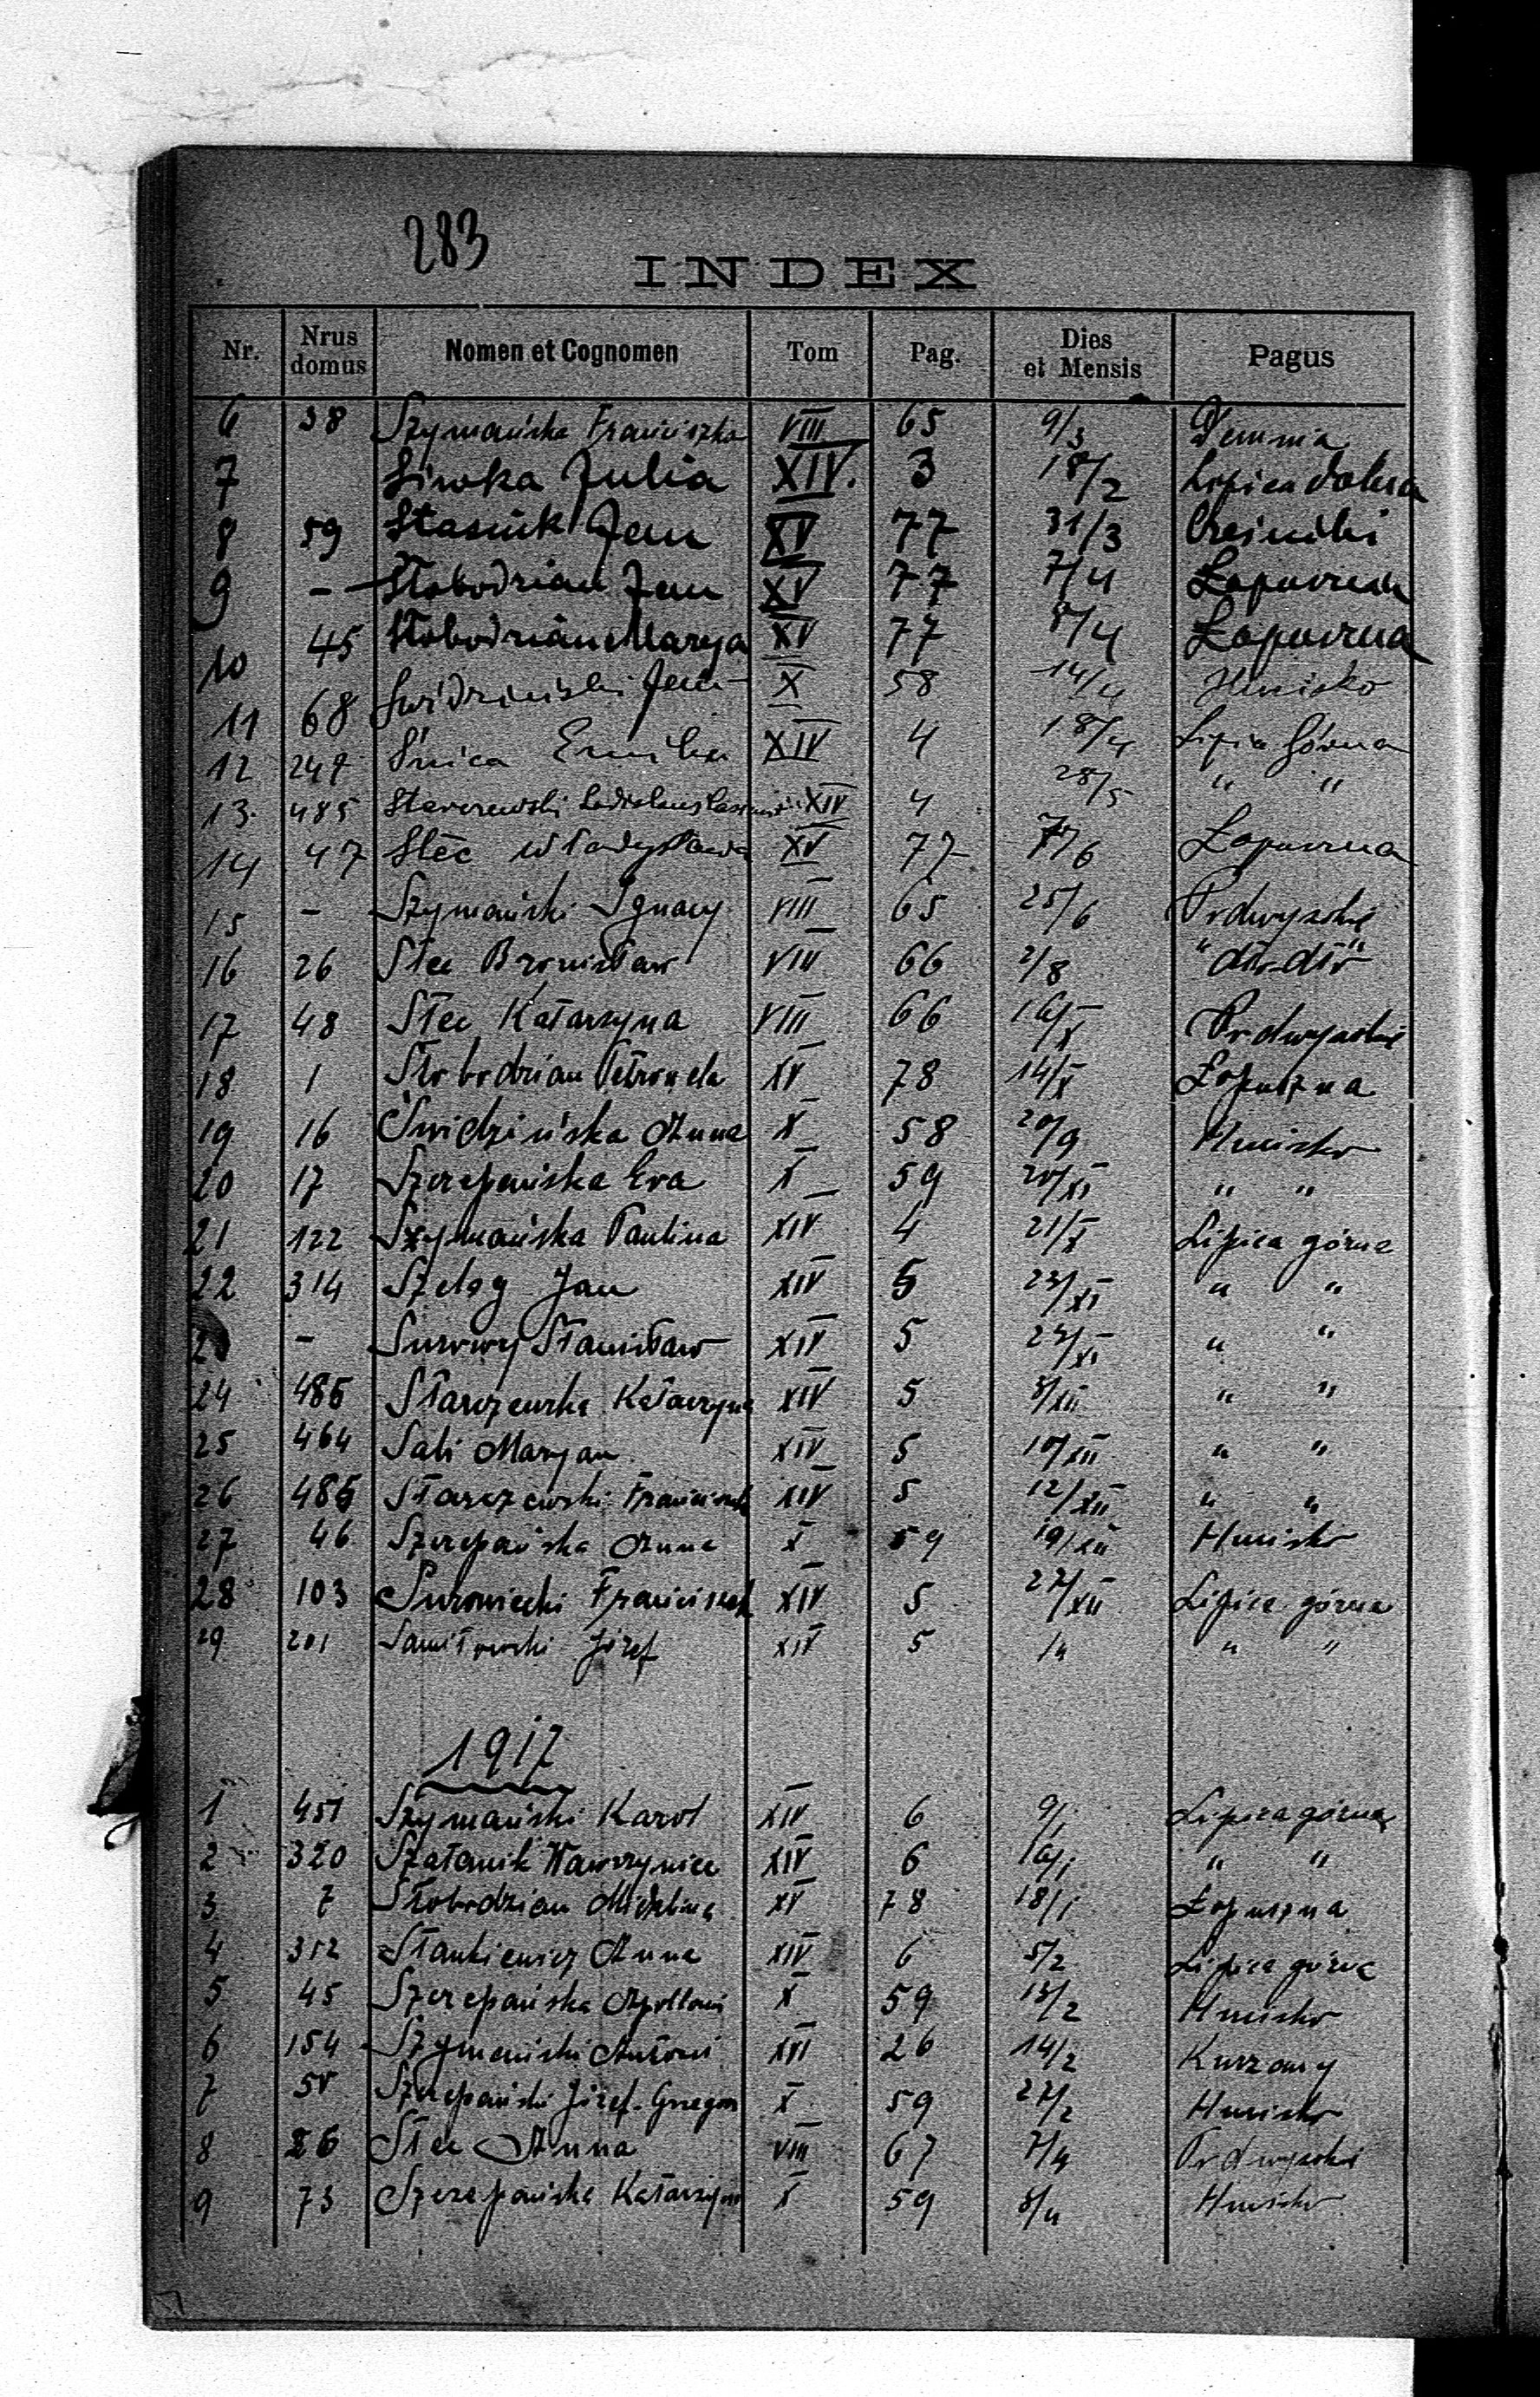 283
INDEX
Nr. Nrus domus Nomen et Cognomen Tom Pag. Dies et Mensis Pagus
6 38 Szymańska Franciszka VIII 65 9/3 Demnia
7 Siwka Julia XIV. 3 18/2 Lipica dolna
8 59 Stasiuk Jan XV 77 31/3
9 - Słobodzian Jan XV 77 7/4 Łopuszna
10 45 Słobodzian Marya XV 77 8/4 Łopuszna
11 68 Świdziński Jan X 58 14/4 Hnisko
12 247 Śnica Emilia XIV 4 18/4 Lipica Górna
13. 485 Starczewski XIV 4 28/5 " "
14 47 Stec Władysława XV 77 7/6 Łopuszna
15 - Szymański Ignacy VIII 65 25/6 Podwysokie
16 26 Stec Bronisław VIII 66 2/8 " dto-dto "
17 48 Stec Katarzyna VIII 66 16/X Podwysokie
18 1 Słobodzian Petronela XV 78 14/X Łopuszna
19 16 Świdzińska Anna X 58 20/9 Hnisko
20 17 Szczepańska Eva X 59 20/XI " "
21 122 Szymańska Paulina XIV 4 21/X Lipica górna
22 314 Szeląg Jan XIV 5 23/XI " "
- Surowy Stanisław XIV 5 " "
24 486 Starczewska Katarzyna XIV 5 8/XII " "
25 464 Sali Maryan XIV 5 10/XII " "
26 486 Starczewski Franciszek XIV 5 12/XII " "
27 46 Szczepańska Anna X 59 19/XII Hnisko
28 103 Surowiecki Franciszek XIV 5 27/XII Lipica górna
29 201 Józef XIV 5 " "
1917
1 451 Szymański Karol XIV 6 9/1 Lipica górna
2 320 Szatanik Wawrzyniec XIV 6 16/1 " "
3 7 Słobodzian Michalina XV 78 18/1 Łopuszna
4 312 Stankiewicz Anna XIV 6 5/2 Lipica górna
5 45 Szczepańska Apolloni X 59 13/2 Hnisko
6 154 Szymański Antoni XVI 26 14/2 Kurzany
7 Szczepański Józef-Grzegorz X 59 27/2 Hnisko
8 26 Stec Anna VIII 67 7/4 Podwysokie
9 73 Szczepańska Katarzyna X 59 8/4 Hnisko